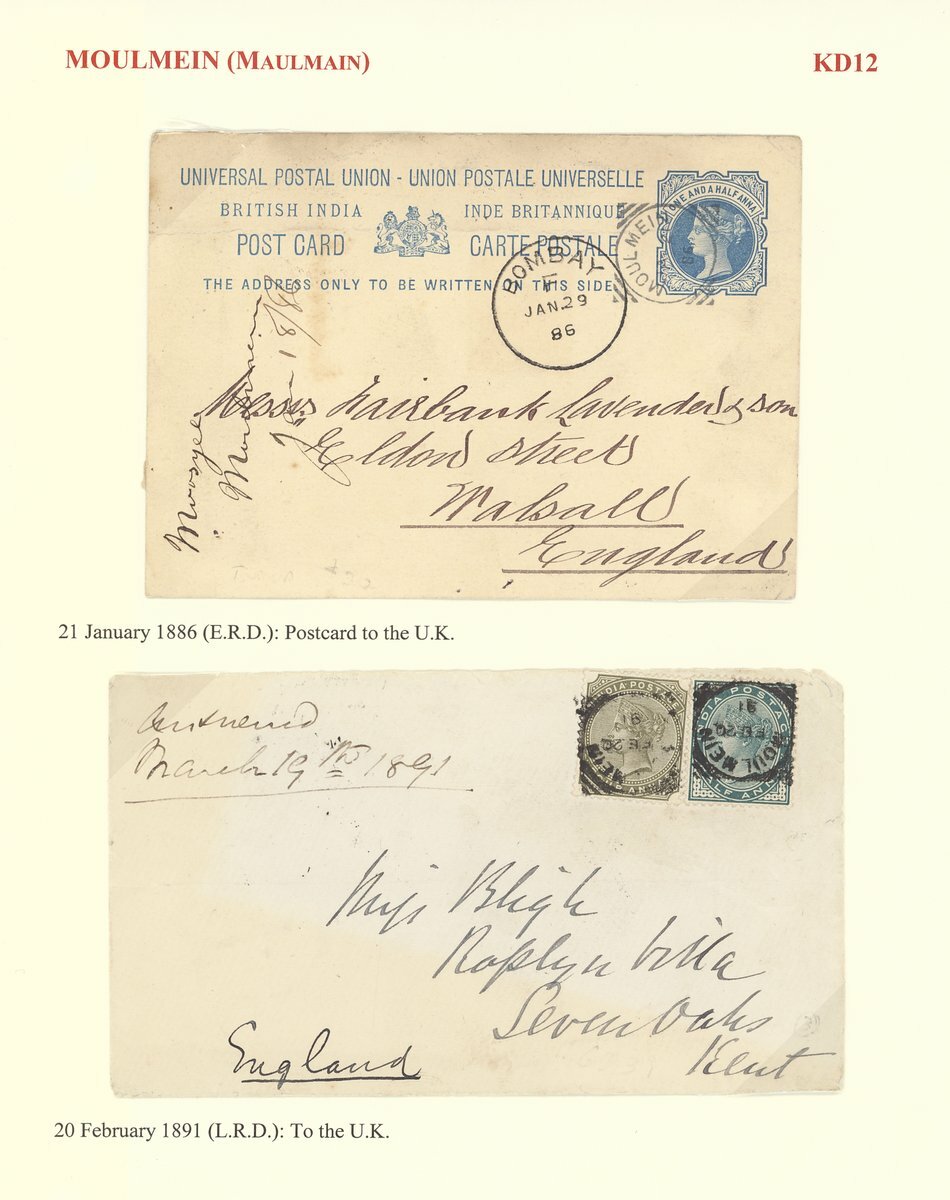 MOULMEIN (MAULMAIN)
KD12
UNIVERSAL POSTAL UNION - UNION POSTALE UNIVERSELLE
BRITISH INDIA INDE BRITANNIQUE
POST CARD CARTE POSTALE
THE ADDRESS ONLY TO BE WRITTEN ON THIS SIDE
ONE AND A HALF ANNA
MOULMEIN
BOMBAY
JAN.29
86
Moulmein
Messrs Fairbank Lavender & son
Eldon street
Walsall
England
21 January 1886 (E.R.D.): Postcard to the U.K.
Answered
March 19th 1891
INDIA POSTAGE
MEIN
FE 20
91
INDIA POSTAGE
HALF ANNA
MOULMEIN
FE 20
91
Miss Bligh
Rosslyn Villa
Seven Oaks
Kent
England
20 February 1891 (L.R.D.): To the U.K.